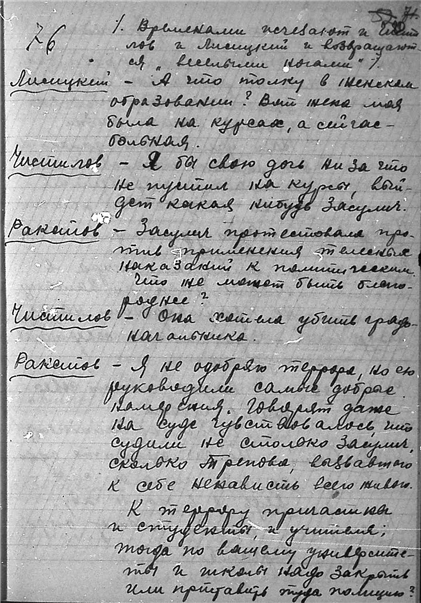 76
71.
/. Временами исчезают и Чисти
лов и Лисицкий и возвращают
ся „веселыми ногами" /.
Лисицкий – А что толку в женском
образовании? Вот жена моя
была на курсах, а сейчас –
больная.
Чистилов – Я бы свою дочь ни за что
не пустил на курсы, вый-
дет какая нибудь Засулич.
Ракитов – Засулич протестовала про
тив применения телесных
наказаний к политическим.
Что же может быть благо-
роднее?
Чистилов – Она хотела убить градо-
начальника.
Ракитов – Я не одобряю террора, но ею
руководили самые добрые
намерения. Говорят даже
на суде чувствовалось что
судили не столько Засулич,
сколько Трепова, вызвавшего
к себе ненависть всего живого.
К террору причастны
и студенты, и учителя;
тогда по вашему университе-
ты и школы надо закрыть
или приставить туда полицию?